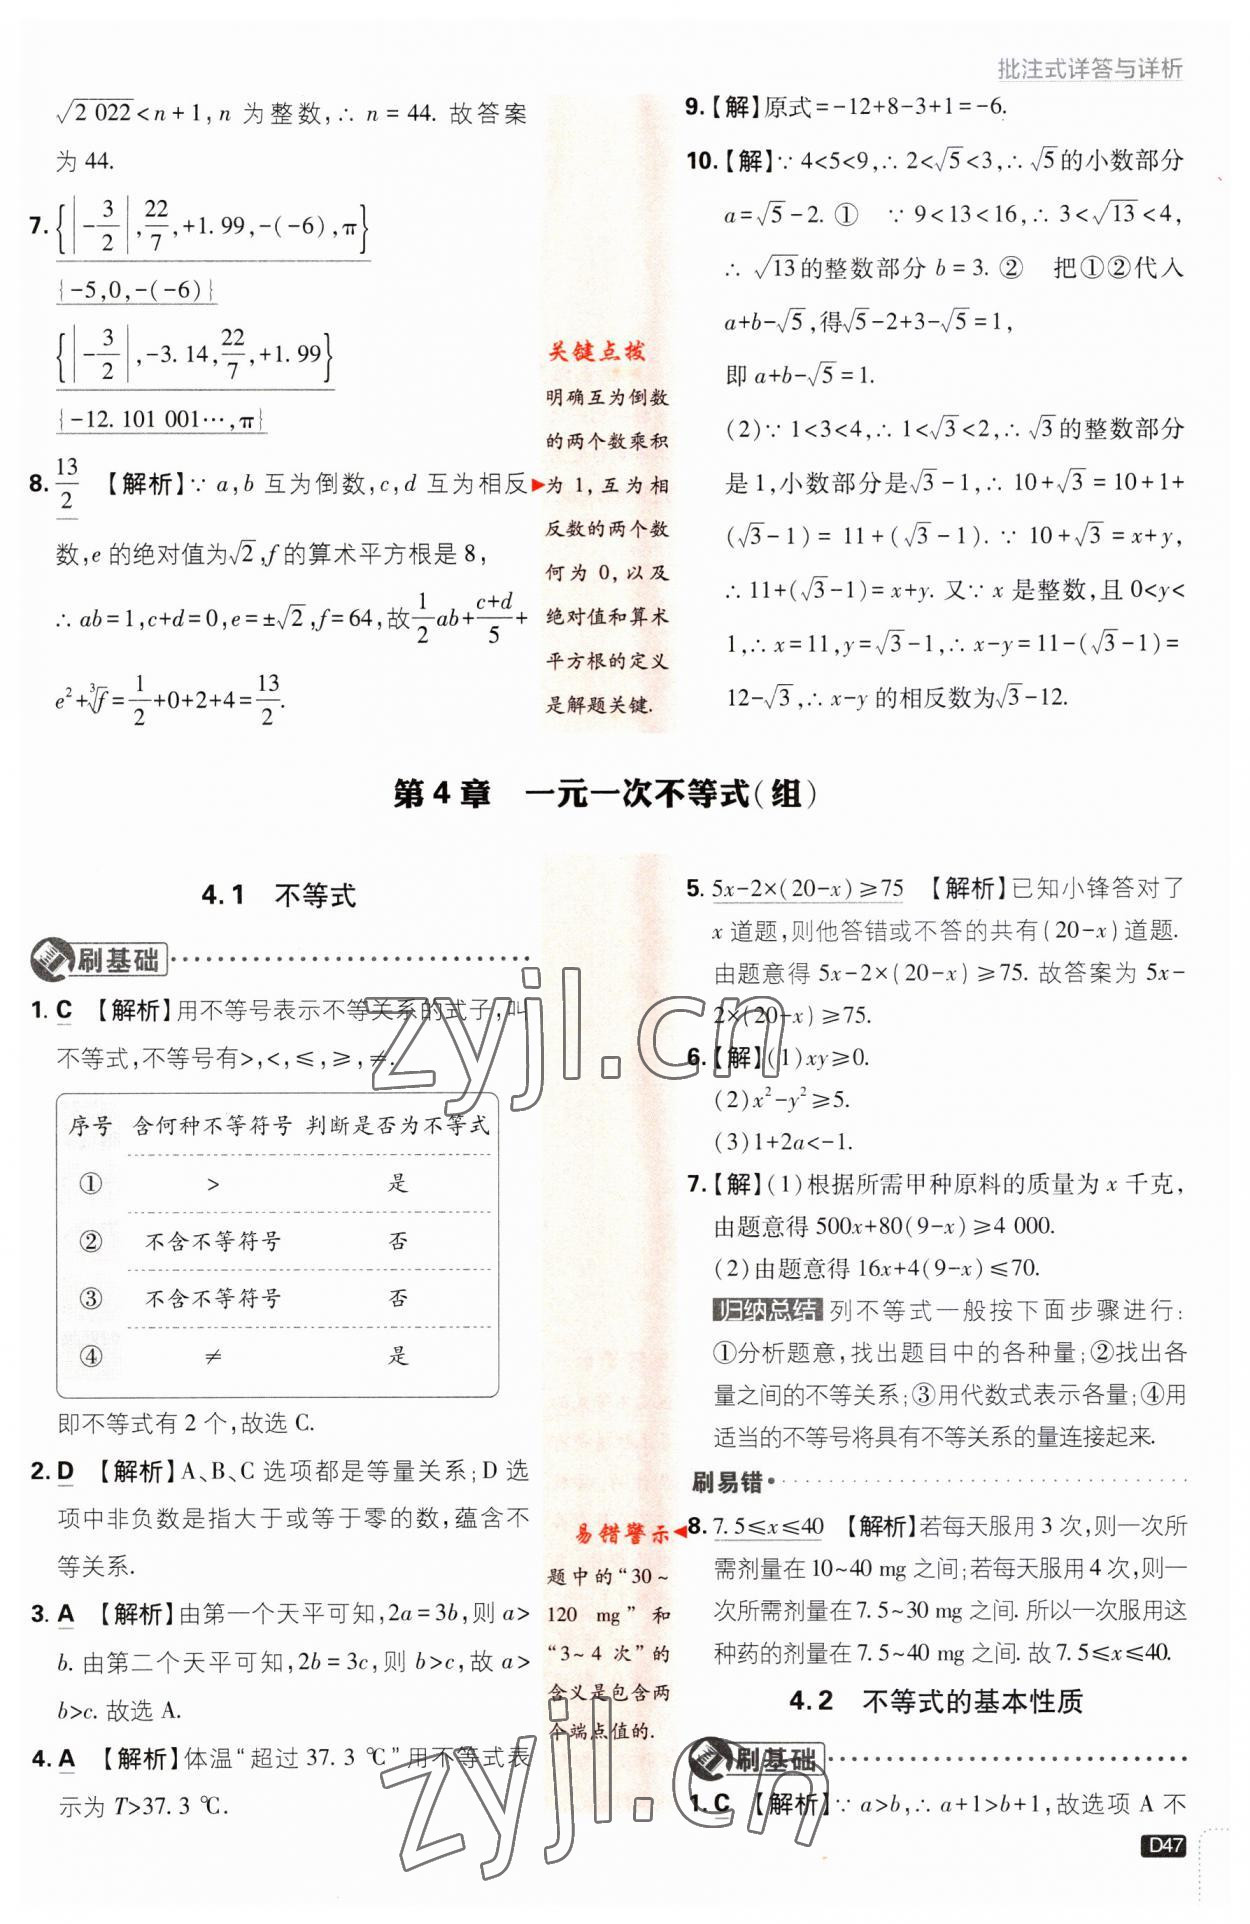 批注式详答与详析
√2 022<n+1,n 为整数,∴ n=44. 故答案
为 44.
7. {|-3/2|,22/7,+1.99,-(-6),π}
{-5,0,-(-6)}
{|-3/2|,-3.14,22/7,+1.99}
{-12.101 001…,π}
8. 13/2 【解析】∵ a,b 互为倒数,c,d 互为相反
数,e 的绝对值为√2,f 的算术平方根是 8,
∴ ab=1,c+d=0,e=±√2,f=64,故1/2ab+(c+d)/5+
e²+³√f=1/2+0+2+4=13/2.
关键点拨
明确互为倒数
的两个数乘积
为 1,互为相
反数的两个数
何为 0,以及
绝对值和算术
平方根的定义
是解题关键.
9.【解】原式=-12+8-3+1=-6.
10.【解】∵ 4<5<9,∴ 2<√5<3,∴ √5的小数部分
a=√5-2. ① ∵ 9<13<16,∴ 3<√13<4,
∴ √13的整数部分 b=3. ② 把①②代入
a+b-√5,得√5-2+3-√5=1,
即 a+b-√5=1.
(2)∵ 1<3<4,∴ 1<√3<2,∴ √3的整数部分
是 1,小数部分是√3-1,∴ 10+√3=10+1+
(√3-1)=11+(√3-1). ∵ 10+√3=x+y,
∴ 11+(√3-1)=x+y. 又∵ x 是整数,且 0<y<
1,∴ x=11,y=√3-1,∴ x-y=11-(√3-1)=
12-√3,∴ x-y 的相反数为√3-12.
第 4 章 一元一次不等式(组)
4.1 不等式
刷基础
1. C 【解析】用不等号表示不等关系的式子,叫
不等式,不等号有>,<,≤,≥,≠.
序号 含何种不等符号 判断是否为不等式
① > 是
② 不含不等符号 否
③ 不含不等符号 否
④ ≠ 是
即不等式有 2 个,故选 C.
2. D 【解析】A、B、C 选项都是等量关系;D 选
项中非负数是指大于或等于零的数,蕴含不
等关系.
3. A 【解析】由第一个天平可知,2a=3b,则 a>
b. 由第二个天平可知,2b=3c,则 b>c,故 a>
b>c. 故选 A.
4. A 【解析】体温“超过 37.3 ℃”用不等式表
示为 T>37.3 ℃.
易错警示
题中的“30~
120 mg”和
“3~4 次”的
含义是包含两
个端点值的.
5. 5x-2×(20-x)≥75 【解析】已知小锋答对了
x 道题,则他答错或不答的共有(20-x)道题.
由题意得 5x-2×(20-x)≥75. 故答案为 5x-
2×(20-x)≥75.
6.【解】(1)xy≥0.
(2)x²-y²≥5.
(3)1+2a<-1.
7.【解】(1)根据所需甲种原料的质量为 x 千克,
由题意得 500x+80(9-x)≥4 000.
(2)由题意得 16x+4(9-x)≤70.
归纳总结 列不等式一般按下面步骤进行:
①分析题意,找出题目中的各种量;②找出各
量之间的不等关系;③用代数式表示各量;④用
适当的不等号将具有不等关系的量连接起来.
刷易错
8. 7.5≤x≤40 【解析】若每天服用 3 次,则一次所
需剂量在 10~40 mg 之间;若每天服用 4 次,则一
次所需剂量在 7.5~30 mg 之间. 所以一次服用这
种药的剂量在 7.5~40 mg 之间. 故 7.5≤x≤40.
4.2 不等式的基本性质
刷基础
1. C 【解析】∵ a>b,∴ a+1>b+1,故选项 A 不
D47
zyjl.cn
zyjl.cn